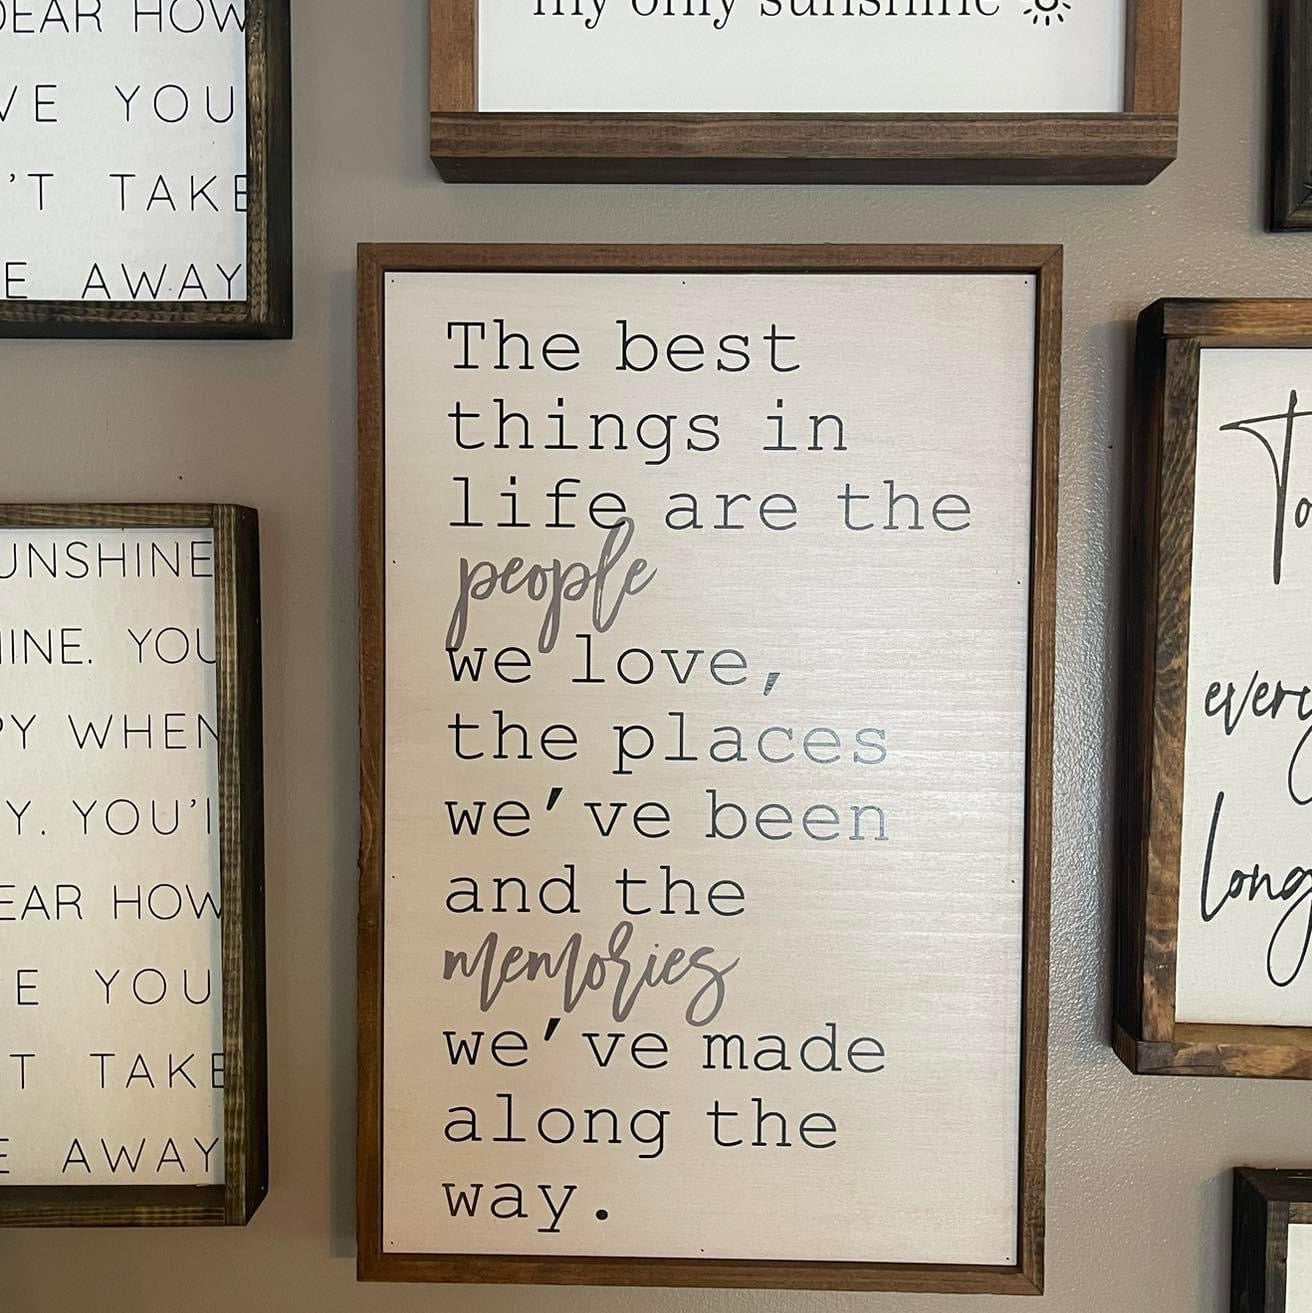 DEAR HOW
YOU
TAKE
AWAY
my only sunshine
The best
things in
life are the
people
we love,
the places
we've been
and the
memories
we've made
along the
way.
UNSHINE
INE. YOU
PY WHEN
Y. YOU'L
EAR HOW
E YOU
T TAKE
E AWAY
To
every
long